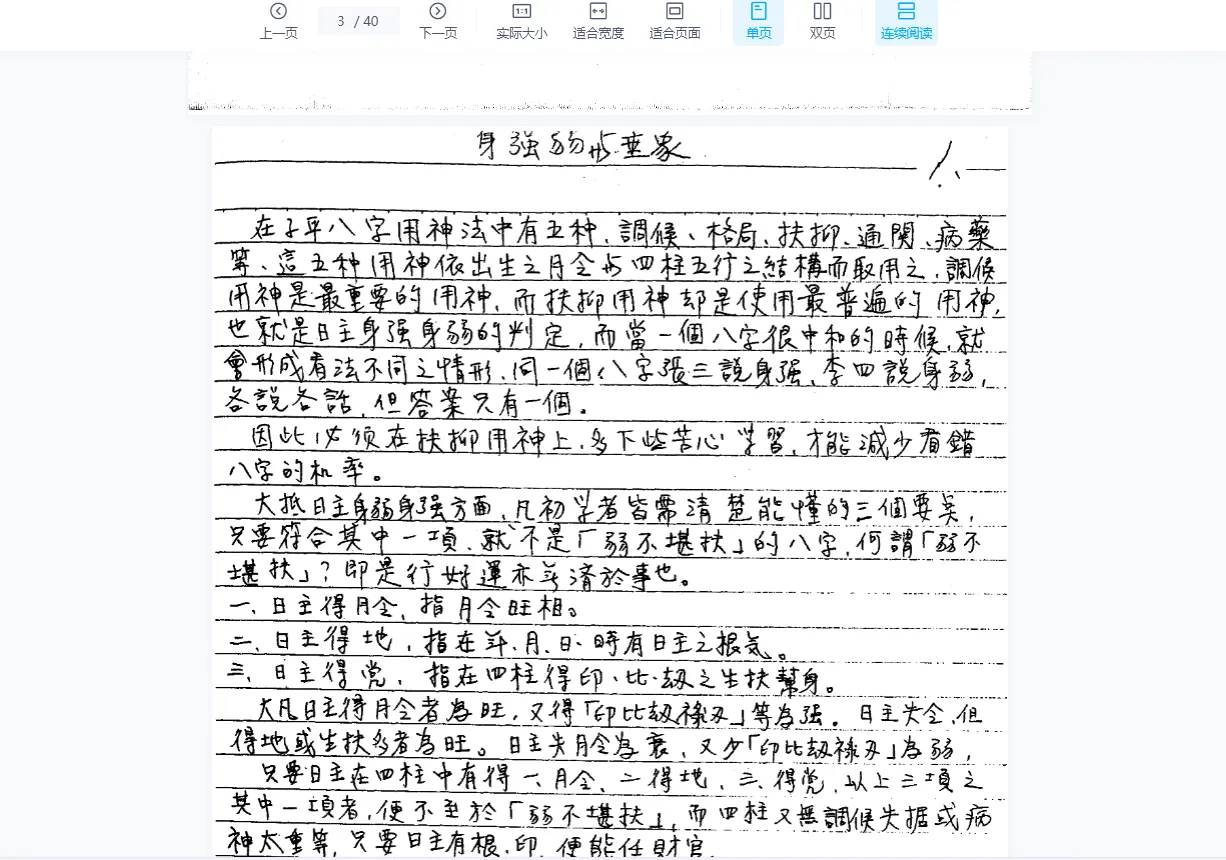 上一页
3 / 40
下一页
1:1
实际大小
适合宽度
适合页面
单页
双页
连续阅读
身强弱与垂象
1、
在子平八字用神法中有五种、調候、格局、扶抑、通関、病藥
等、這五种用神依出生之月令与四柱五行之結構而取用之、調候
用神是最重要的用神、而扶抑用神却是使用最普遍的用神,
也就是日主身强身弱的判定,而當一個八字很中和的時候,就
會形成看法不同之情形、同一個八字張三說身强、李四說身弱,
各說各話,但答案只有一個。
因此必须在扶抑用神上、多下些苦心学習、才能減少看錯
八字的机率。
大抵日主身弱身强方面、凡初学者皆需清楚能懂的三個要吴,
只要符合其中一項、就不是「弱不堪扶」的八字,何謂「弱不
堪扶」?即是行好運亦無濟於事也。
一、日主得月令、指月令旺相。
二、日主得地,指在年、月、日、時有日主之根気。
三、日主得党、指在四柱得印、比、劫之生扶幫身。
大凡日主得月令者為旺,又得「印比劫祿刃」等為强。日主失令,但
得地或生扶多者為旺。日主失月令為衰、又少「印比劫祿刃」為弱,
只要日主在四柱中有得一、月令、二得地、三、得党,以上三項之
其中一項者,便不至於「弱不堪扶」,而四柱又無調候失据或病
神太重等、只要日主有根、印、便能任財官、